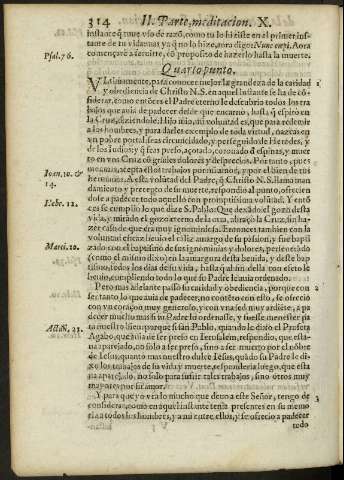 314 II. Parte, meditacion. X.
instante q̃ tuue vso de razõ, como tu lo hiziste en el primer ins-
tante de tu vida: mas ya q̃ no lo hize, aora digo: Nunc cœpi. Aora
Psal. 76.
començaré a seruirte, cõ proposito de hazerlo hasta la muerte.
Quarto punto.
Vltimamente, para conocer mejor la grandeza de la caridad
y obediencia de Christo N.S. en aquel instante se ha de cõ-
siderar, como entõces el Padre eterno le descubrio todos los tra
bajos que auia de padecer desde que encarnò, hasta q̃ espirò en
la Cruz, diziendole: Hijo mio, mi voluntad es, que para redemir
a los hombres, y para darles exemplo de toda virtud, nazcas en
vn pobre portal, seas circuncidado, y perseguido de Herodes, y
de los Iudios; y q̃ seas preso, açotado, coronado d̃ espinas, y muer
to en vna Cruz cõ graues dolores y desprecios. Por tanto, pues
me amas, acepta estos trabajos por mi amor, y por el bien de tus
Ioan. 10. &
14.
hermanos. A esta volũtad del Padre, q̃ Christo N.S. llama man
damiento y precepto de su muerte, respondio al punto, ofreciẽ
dose a padecer todo aquello con promptissima volũtad. Y entõ
Hebr. 12.
ces se cumplio lo que dize S. Pablo: Que dexãdo el gozo desta
vida, y mirãdo el gozo eterno de la otra, abraçò la Cruz, sin ha-
zer caso de que era muy ignominiosa. Entonces tambien con la
voluntad eficaz beuio el caliz amargo de su pasion, y fue bapti
Marci. 10.
zado con el baptismo de sus ignominias y dolores, perseuerãdo
(como el mismo dixo) en la amargura desta beuida, y deste bap
tismo, todos los dias de su vida, hasta q̃ al fin della con efeto le
beuio, cumpliendo todo lo que su Padre le auia ordenado.
Pero mas adelante passò su caridad y obediencia, porque con
2
ser tanto lo que auia de padecer, no contẽto con esto, se ofrecio
con vn coraçon muy generoso, y con vna sed muy ardiẽte, a pa-
decer mucho mas si su Padre lo ordenasse, y fuesse menester pa
Act. 21.
ra nuestro bien: porque si san Pablo, quando le dixo el Profeta
Agabo, que auia de ser preso en Ierusalem, respondio, que esta-
ua aparejado, no solo a ser preso, sino a ser muerto por el nõbre
de Iesus, quanto mas nuestro dulce Iesus, quãdo su Padre le di-
xo los trabajos de su vida y muerte, respondería luego, que esta
ua aparejado, no solo para sufrir tales trabajos, sino otros muy
mayores por su amor.
Y para que yo vea lo mucho que deuo a este Señor, tengo de
3
considerar, como en aquel instante tenia presentes en su memo
ria a todos los hombres, y a mi entre ellos, y se ofrecio a padecer
todo